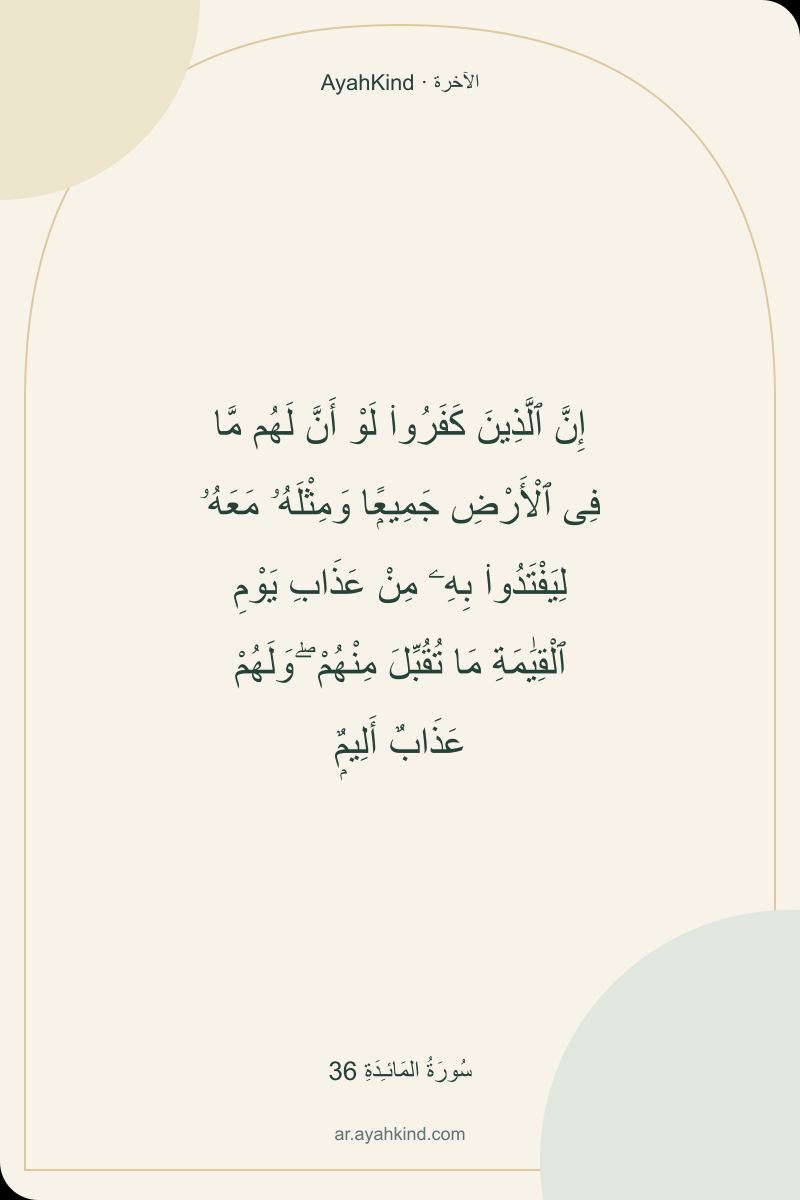 AyahKind · الآخرة
إِنَّ ٱلَّذِينَ كَفَرُوا۟ لَوْ أَنَّ لَهُم مَّا
فِى ٱلْأَرْضِ جَمِيعًۭا وَمِثْلَهُۥ مَعَهُۥ
لِيَفْتَدُوا۟ بِهِۦ مِنْ عَذَابِ يَوْمِ
ٱلْقِيَـٰمَةِ مَا تُقُبِّلَ مِنْهُمْ ۖ وَلَهُمْ
عَذَابٌ أَلِيمٌۭ
سُورَةُ المَائـِدَةِ 36
ar.ayahkind.com